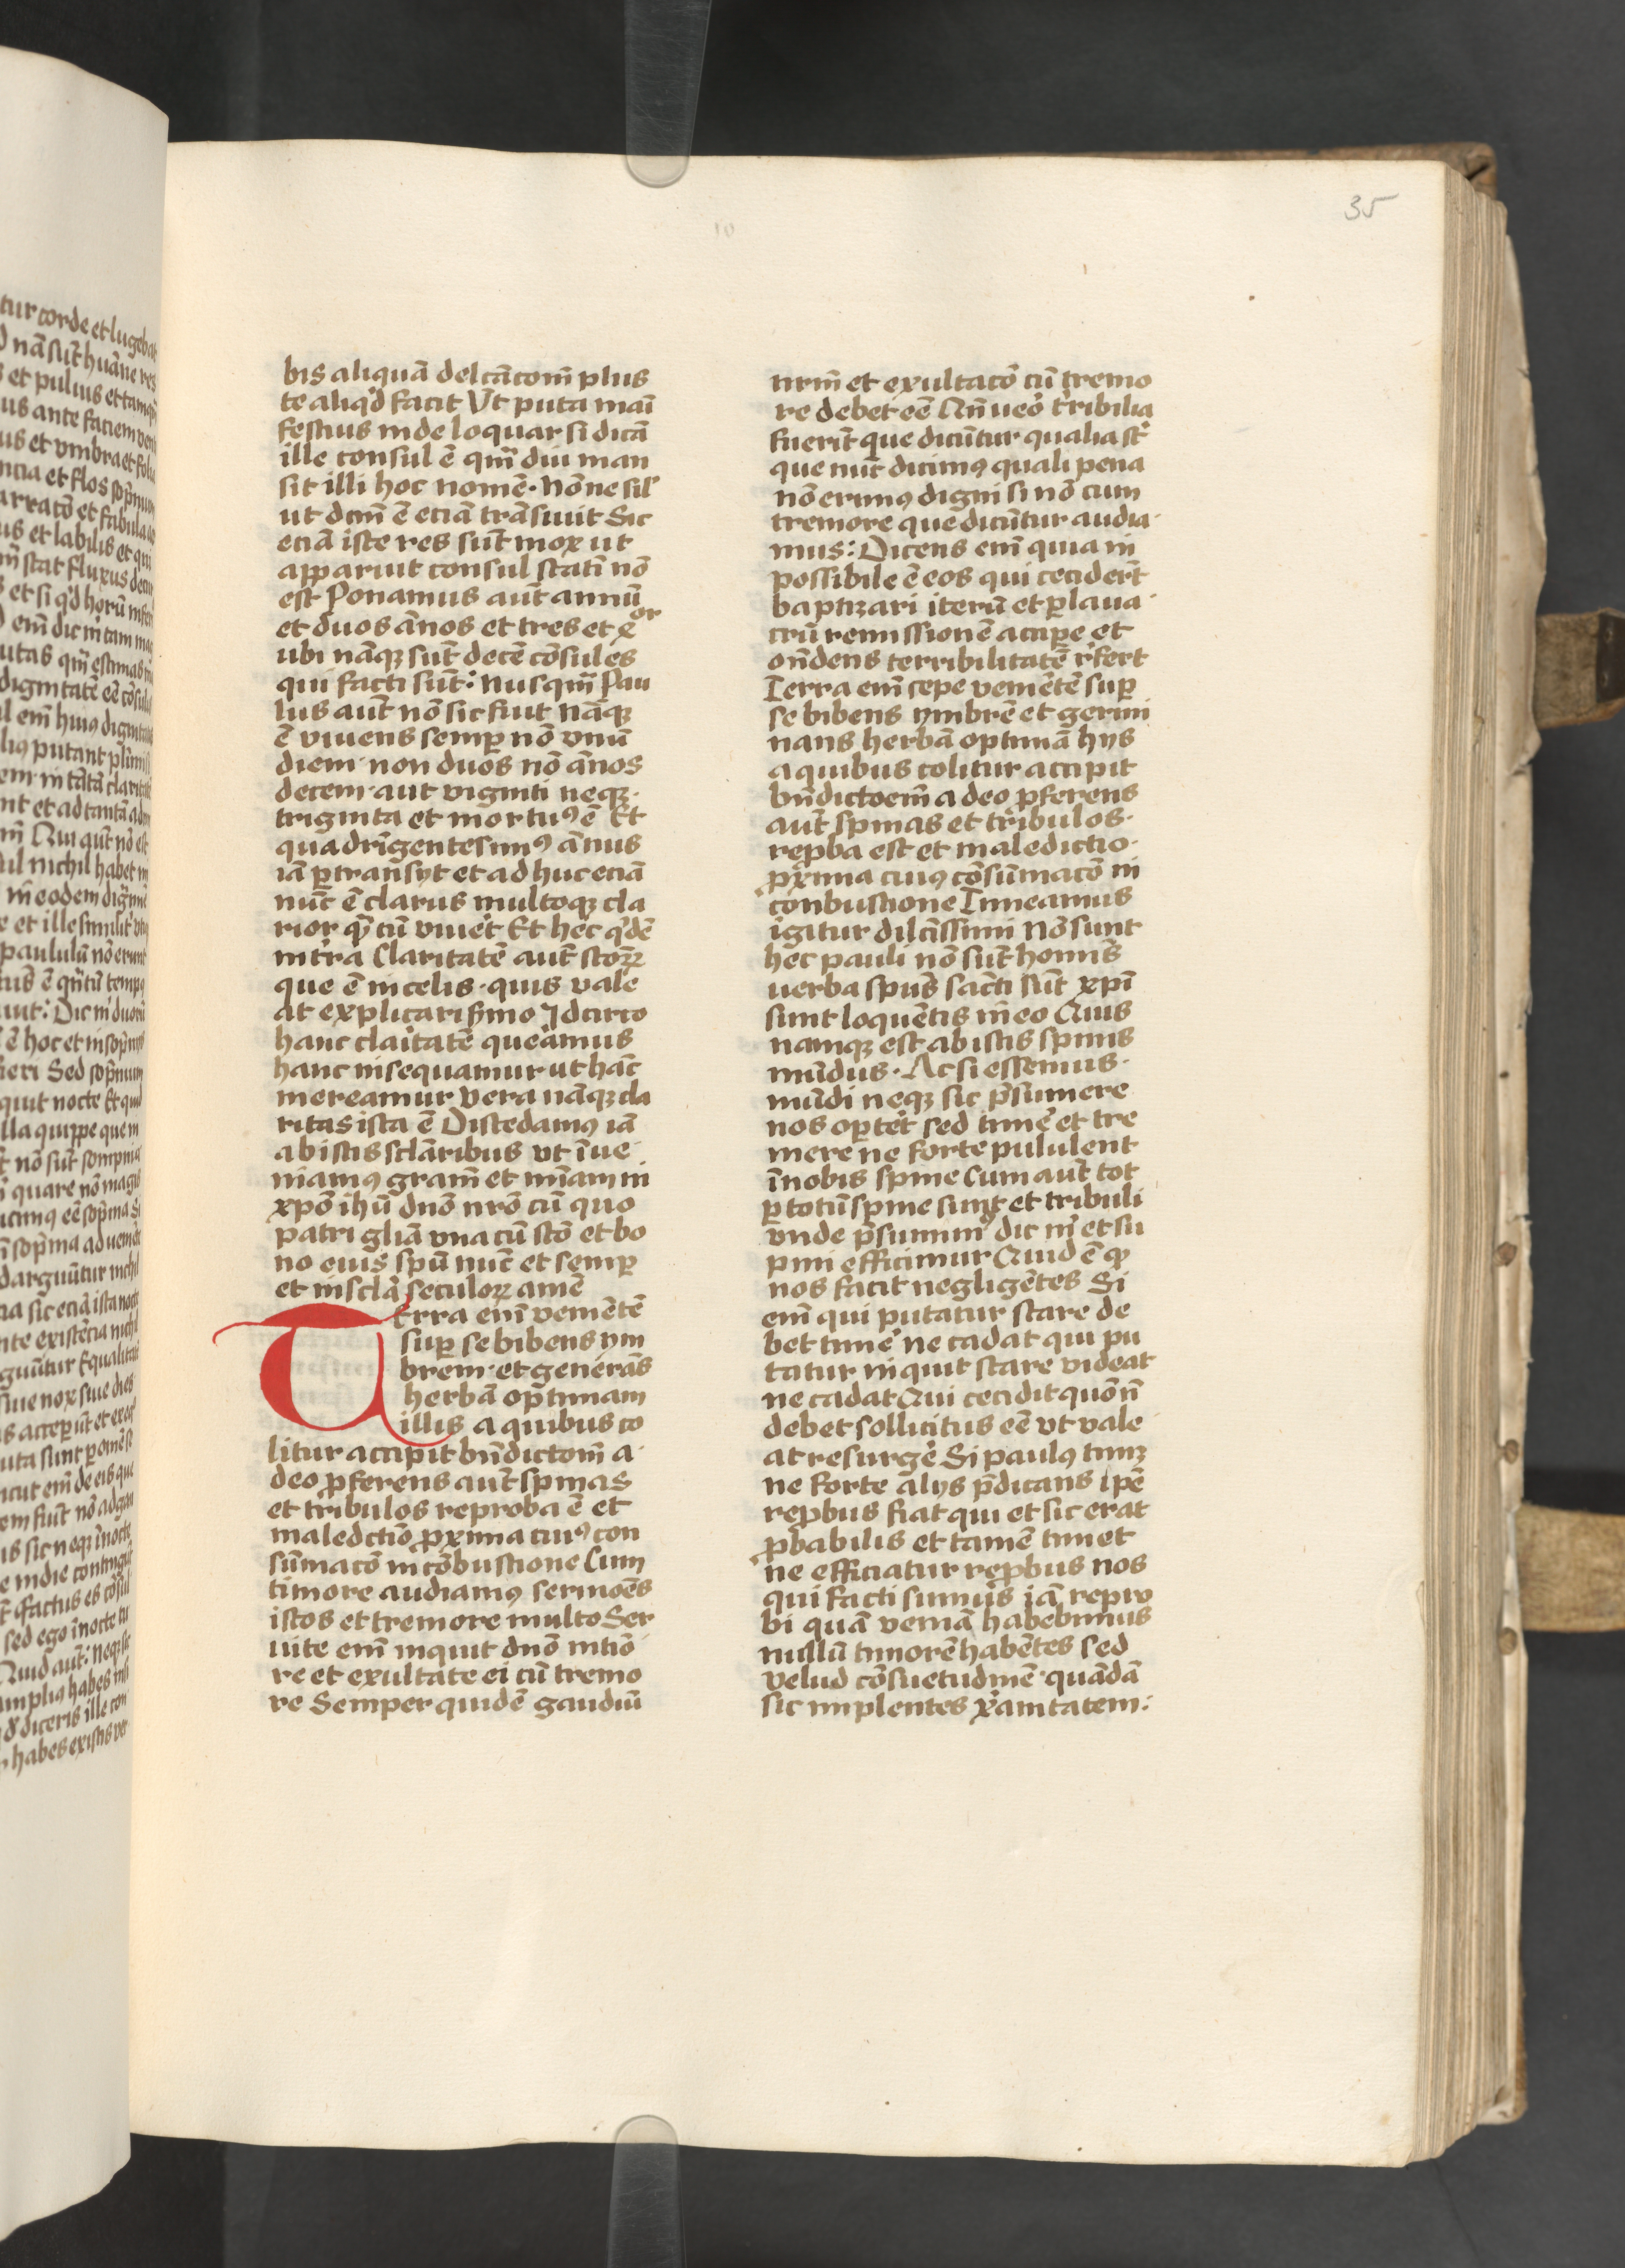 35
bis aliquā delcācom̄ plus
te aliqd̓ facit Vt puta mani
festius inde loquar si dicā
ille consul ē qm̄ diu man
sit illi hoc nomē· Nōne sil̓
ut dcm̄ ē eciā trāsiuit Sic
eciā iste res sūt mox ut
apparuit consul statī nō
est Ponamus aūt annū
et duos ānos et tres et x
or
ubi nāqꝫ sūt decē cōsules
qui facti sūt: Nusqm̄ Pau
lus aūt nō sic fuit Nāqꝫ
ē viuens semꝑ nō vnū
diem· non duos nō ānos
decem· aut viginti neqꝫ·
triginta et mortuꝰ ē Et
quadrīgentesimꝰ ānus
iā ꝑtransyt et adhuc eciā
nūc ē clarus multoqꝫ cla
rior qͣ cū viuet̓ Et hec qͥdē
in tr̓ra Claritatē aūt scōꝝ
que ē in celis· quis vale
at explicari s̓mo Idcirco
hanc clai̓tatē quer̓amus
hanc insequamur ut hāc
mereamur Vera nāqꝫ cla
ritas ista ē Discedamꝰ iā
ab istis sclāribus vt īue
niamꝰ gram̄ et mīam in
xpō ihū dnō nrō cū quo
patri gliā vna cū scō et bo
no eius spū nūc et semꝑ
et in scla̓ seculoꝝ amē
Terra em̄ veniētē
suꝑ se bibens ym
brem· et generās
herbā optimam
illis a quibus co
litur accipit bn̄dictom̄ a·
deo ꝓferens aūt spinas
et tribulos reproba ē et
maledctiō ꝓxima cuiꝰ con
sūmacō in cōbustione Cum
timore audiamꝰ sermoēs
istos et tremore multo Ser
uite em̄ inquit dnō in tiō
re et exultate ei cū tremo
re Semper quidē gaudiū
nrm̄ et exultacō cū tremo
re debet eē Qn̄ ueō tr̓ribilia
fuerīt que dicūtur qualia sc̄
que nūc dicimꝰ quali pena
nō erimꝰ digni si nō cum
tremore que dicūtur audia·
mus: Dicens em̄ quia in
possibile ē eos qui cecider̄t
baptizari iterū et ꝑ laua·
crū remissionē accipe̓ et
on̄dens terribilitatē r̓fert
Terra em̄ sepe veniētē suꝑ
se bibens ymbrē et germi
nans herbā optimā hys
a quibus colitur accipit
bn̄dictoem̄ a deo ꝓferens
aūt spinas et tribulos·
reꝓba est et maledictio·
ꝓxima cuiꝰ cōsūmacō in
conbustione Timeamus
igitur dilcīssimi Nō sunt
hec pauli nō sūt homīs
uerba spūs sācti sūt xpī
sunt loquētis in eo Quis
namqꝫ est ab istis spinis
mūdus· Ac si essemus·
mūdi neqꝫ sic p̄sumere
nos oꝑtet̓ sed time̓ et tre
mere ne forte pululent
ī nobis spine Cum aūt tot
ꝑ totū spine simꝰ et tribuli
vnde p̄sumimꝰ dic m̓ et su
pini efficimur Quid ē qͦ
nos facit negligētes Si
em̄ qui putatur stare de
bet time̓ ne cadat qui pu
tatur inquit stare videat
ne cadat Qui cecidit quō n̄
debet sollicitus eē vt vale
at resurge̓ Si paulꝰ timꝫ
ne forte alys p̄dicans ipē
reꝓbus fiat qui et sic erat
ꝓbabilis et tamē timet
ne efficiatur reꝓbus nos
qui facti sumus iā repro
bi quā veniā habebimus
nullū timorē habētes sed
velud cōsuetudinē quādā
sic implentes x̓anitatem: